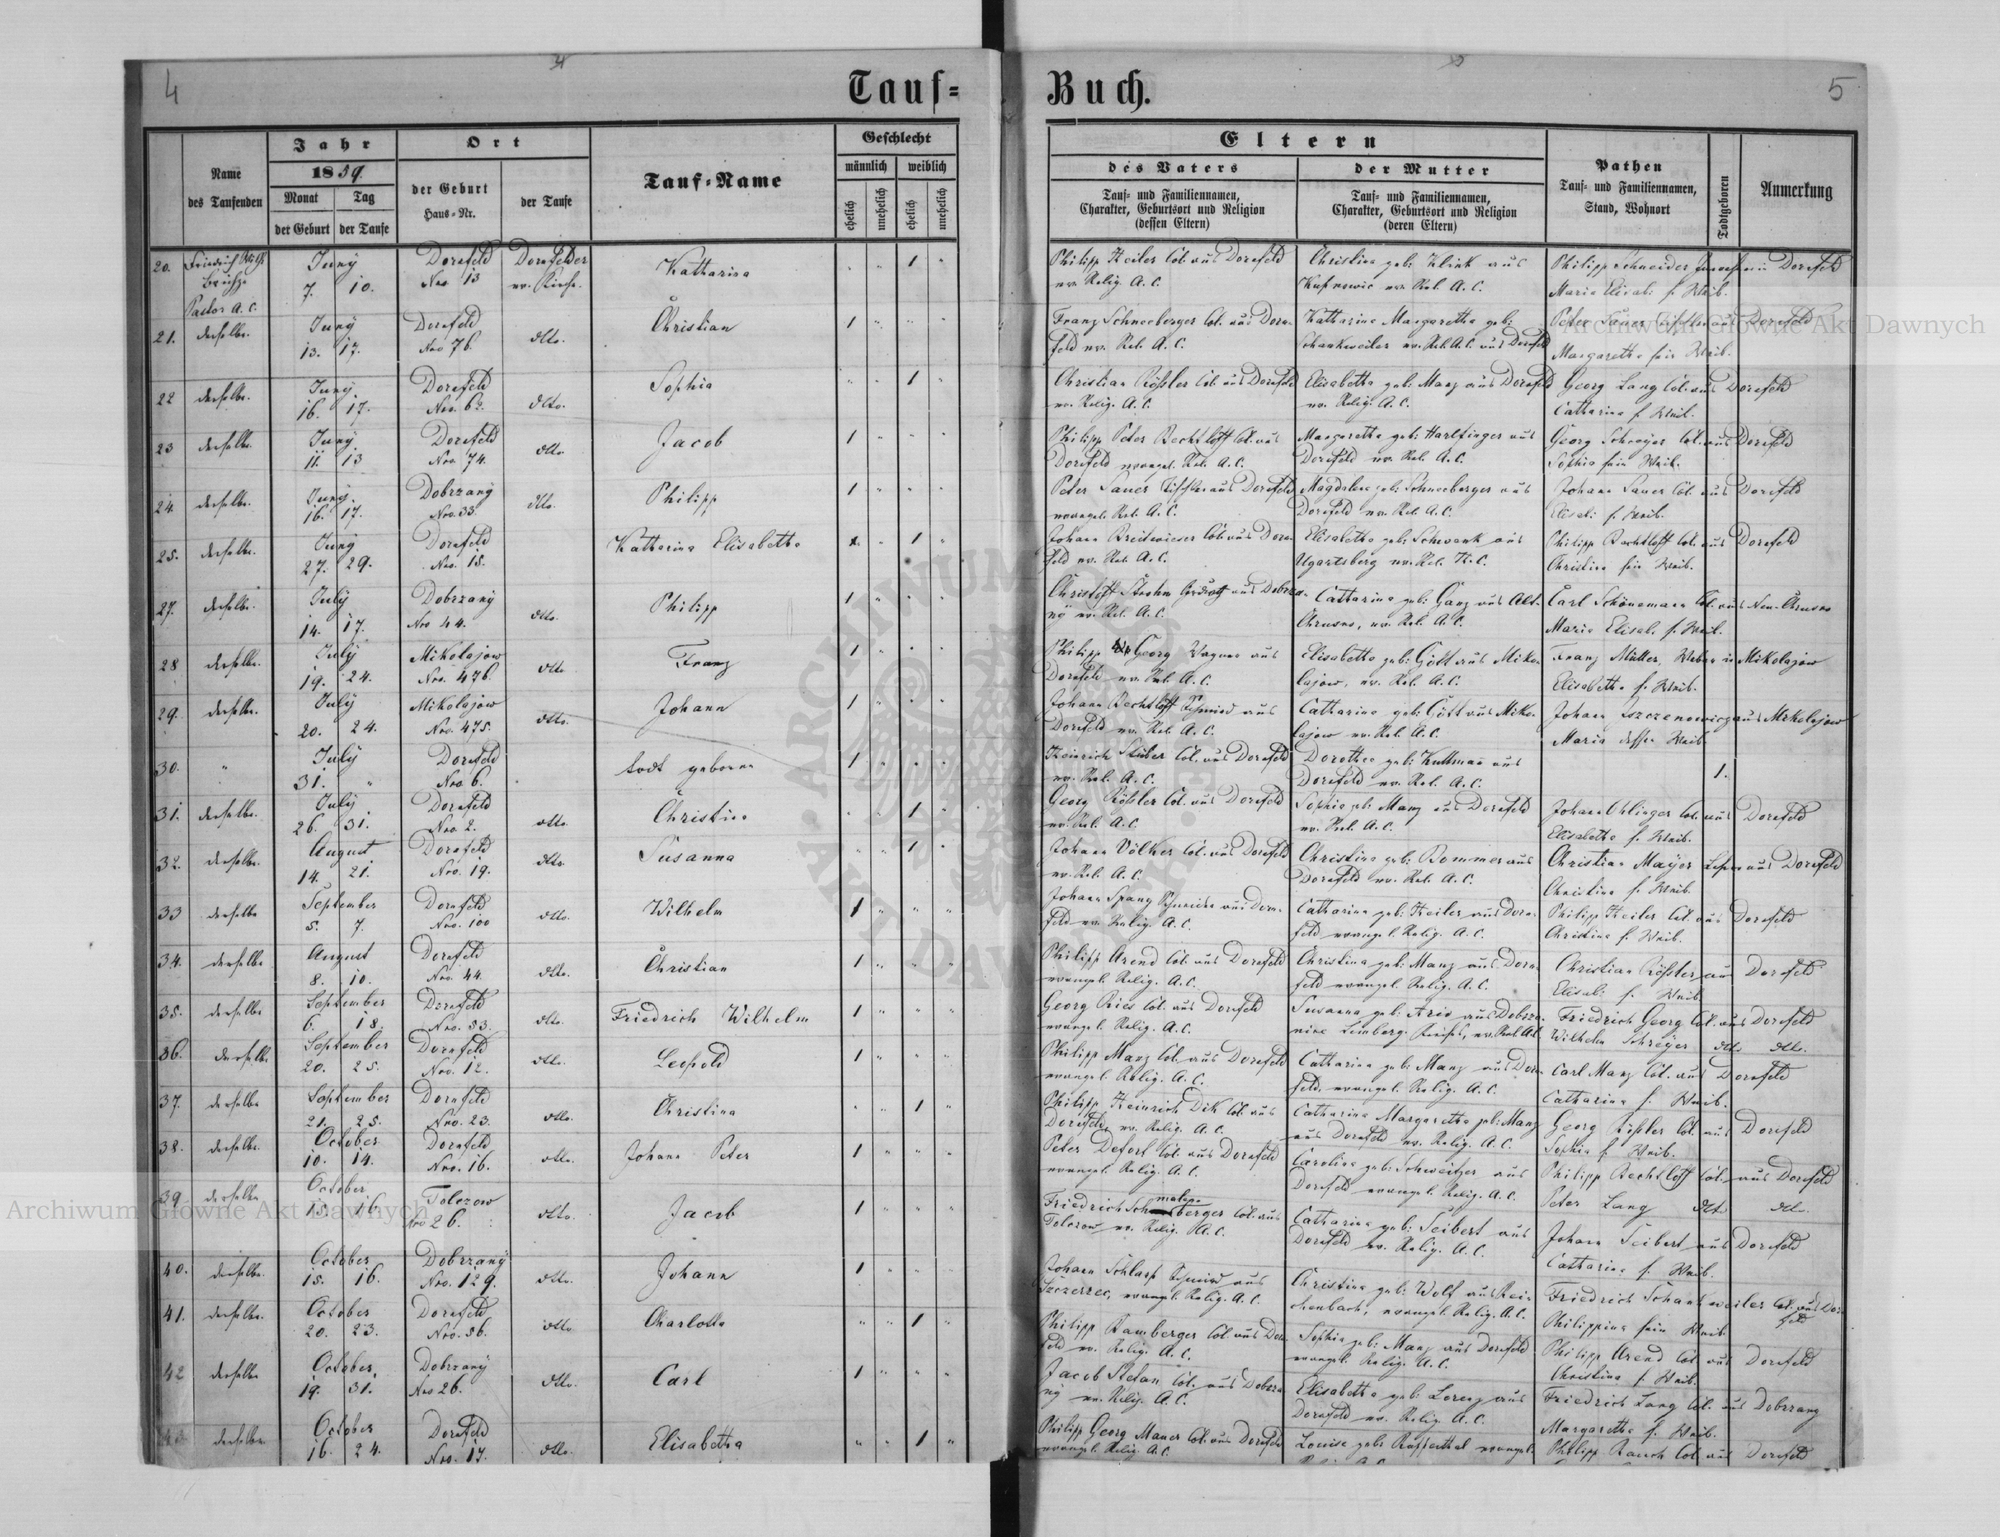 4
Tauf=
Buch.
5
Name
des Taufenden
Jahr
1859.
Monat
der Geburt
Tag
der Taufe
Ort
der Geburt
Haus=Nr.
der Taufe
Tauf=Name
Geschlecht
männlich
weiblich
ehelich
unehelich
ehelich
unehelich
Eltern
des Vaters
Tauf= und Familiennamen,
Charakter, Geburtsort und Religion
(dessen Eltern)
der Mutter
Tauf= und Familiennamen,
Charakter, Geburtsort und Religion
(deren Eltern)
Pathen
Tauf= und Familiennamen,
Stand, Wohnort
Todtgeboren
Anmerkung
20. Juny Dornfeld Dornfelder Katharina 1 Philipp Keiler Col. aus Dornfeld Christina geb. Klink aus Philipp Schneider Dornfeld
Pastor A. C. 7. 10. Nro 13 ev. Kirche. ev. Relig. A. C. ev. Rel. A. C. Maria Elisab. s. Weib.
21. derselbe. Juny Dornfeld dtto. Christian 1 Franz Schneeberger Col. aus Dorn- Katharina Margaretha geb. Peter Dornfeld
13. 17. Nro 76. feld ev. Rel. A. C. Schankweiler ev. Rel. A. C. aus Dornfeld Margaretha sein Weib.
22 derselbe. Juny. Dornfeld dtto. Sophia 1 Christian Rößler Col. aus Dornfeld Elisabetha geb. Manz aus Dornfeld Georg Lang Col. aus Dornfeld
16. 17. ev. Relig. A. C. ev. Relig. A. C. Catharina s. Weib.
23 derselbe. Juny Dornfeld dtto. Jacob 1 Philipp Peter Bechtloff Col. aus Margaretha geb. Harlfinger aus Georg Schreyer Col. aus Dornfeld
11. 13 Nro. 74. Dornfeld evangel. Rel. A. C. Dornfeld ev. Rel. A. C. Sophia sein Weib.
24 derselbe. Juny. Dobrzany dtto. Philipp 1 Peter Sauer Tischler aus Dornfeld Magdalena geb. Schneeberger aus Johann Sauer Col. aus Dornfeld
16. 17. Nro. 33. evangel. Rel. A. C. Dornfeld ev. Rel. A. C. Elisab. s. Weib.
25. derselbe. Juny Dornfeld Katharina Elisabetha 1 Johann Breitwieser Col. aus Dorn- Elisabetha geb. Schwank aus Philipp Bechtloff Col. aus Dornfeld
27. 29. Nro. 15. feld ev. Rel. A. C. Ugartsberg ev. Rel. H. C. Christina sein Weib.
27. derselbe. July Dobrzany dtto. Philipp 1 Christoff Strohm aus Dobrza- Catharina geb. Ganz aus Alt- Carl Schönemann Col. aus Neu-Chrusno
14. 17. Nro 44. ny ev. Rel. A. C. Chrusno, ev. Rel. A. C. Maria Elisab. s. Weib.
28 derselbe. July Mikolajow dtto Franz 1 Philipp Georg Wagner aus Elisabetha geb. Gött aus Miko- Franz Müller, Weber in Mikolajow
19. 24. Nro. 476. Dornfeld ev. Rel. A. C. lajow, ev. Rel. A. C. Elisabetha s. Weib.
29. derselbe. July Mikolajow dtto. Johann 1 Johann Bechtloff Schmied aus Catharina geb. Gött aus Miko- Johann aus Mikolajow
20. 24. Nro. 475. Dornfeld ev. Rel. A. C. lajow ev. Rel. A. C. Maria dessen Weib.
30. " July Dornfeld todt geboren 1 Heinrich Stuber Col. aus Dornfeld Dorothea geb. Kuttman aus 1.
31. " Nro. 6. ev. Rel. A. C. Dornfeld ev. Rel. A. C.
31. derselbe. July Dornfeld dtto. Christina 1 Georg Rößler Col. aus Dornfeld Sophia geb. Manz aus Dornfeld Johann Ohlinger Col. aus Dornfeld
26. 31. Nro. 2. ev. Rel. A. C. ev. Rel. A. C. Elisabetha s. Weib.
32. derselbe. August Dornfeld dtto. Susanna 1 Johann Völker Col. aus Dornfeld Christina geb. Bommer aus Christian Mayer Lehrer aus Dornfeld
14. 21. Nro. 19. ev. Rel. A. C. Dornfeld ev. Rel. A. C. Christina s. Weib.
33 derselbe September Dornfeld dtto. Wilhelm 1 Johann Spang Schneider aus Dorn- Catharina geb. Keiler aus Dorn- Philipp Keiler Col. aus Dornfeld
5. 7. Nro. 100 feld ev. Relig. A. C. feld evangel. Relig. A. C. Christina s. Weib.
34. derselbe August Dornfeld dtto. Christian 1 Philipp Arend Col. aus Dornfeld Christina geb. Manz aus Dorn- Christian Rößler aus Dornfeld
8. 10. Nro. 44. evangel. Relig. A. C. feld evangel. Relig. A. C. Elisab. s. Weib
35. derselbe September Dornfeld dtto. Friedrich Wilhelm 1 Georg Ries Col. aus Dornfeld Susanna geb. aus Friedrich Georg Col. aus Dornfeld
6. 18. Nro. 53. evangel. Relig. A. C. Wilhelm Schreyer dtt. dtt.
36. derselbe September Dornfeld dtto. Leopold 1 Philipp Manz Col. aus Dornfeld Catharina geb. Manz aus Dorn- Carl Manz Col. aus Dornfeld
20. 25. Nro. 12. evangel. Relig. A. C. feld, evangel. Relig. A. C. Catharina s. Weib.
37. derselbe September Dornfeld dtto. Christina 1 Philipp Heinrich Dik Col. aus Catharina Margaretha geb. Manz Georg Rößler Col. aus Dornfeld
21. 25. Nro. 23. Dornfeld, ev. Relig. A. C. aus Dornfeld ev. Relig. A. C. Sophia s. Weib.
38. derselbe. October Dornfeld dtto. Johann Peter 1 Peter Defort Col. aus Dornfeld Carolina geb. Schweitzer aus Philipp Bechtloff Col. aus Dornfeld
10. 14. Nro. 16. evangel. Relig. A. C. Dornfeld evangel. Relig. A. C. Peter Lang dtt. dtt.
39 derselbe October Tolszow dtto. Jacob 1 Friedrich Schmalenberger Col. aus Catharina geb. Seibert aus Johann Seibert aus Dornfeld
15. 16. Nro 26. ev. Relig. A. C. Dornfeld ev. Relig. A. C. Catharina s. Weib.
40. derselbe. October Dobrzany dtto. Johann 1 Johann Schlapp Schmied aus Christina geb. Wolf aus Rei- Friedrich Schankweiler Col. aus Dorn-
15. 16. Nro. 129. Szczerzec, evangel. Relig. A. C. chenbach, evangel. Relig. A. C. Philippina sein Weib feld
41. derselbe. October Dornfeld dtto Charlotta 1 Philipp Bamberger Col. aus Dorn- Sophia geb. Manz aus Dornfeld Philipp Arend Col. aus Dornfeld
20. 23. Nro. 56. feld ev. Relig. A. C. evangel. Relig. A. C. Christina s. Weib.
42 derselbe October Dobrzany dtto. Carl 1 Jacob Stefan Col. aus Dobrza- Elisabetha geb. Lorenz aus Friedrich Lang Col. aus Dobrzany
19. 31. Nro 26. ny ev. Relig. A. C. Dornfeld ev. Relig. A. C. Margaretha s. Weib.
derselbe. October Dornfeld dtto. Elisabetha 1 Philipp Georg Mauer Col. aus Dornfeld Louise geb. evangel. Philipp Rauch Col. aus Dornfeld
16. 24. Nro. 17. evangel. Relig. A. C.
Archiwum Główne Akt Dawnych
Archiwum Główne Akt Dawnych